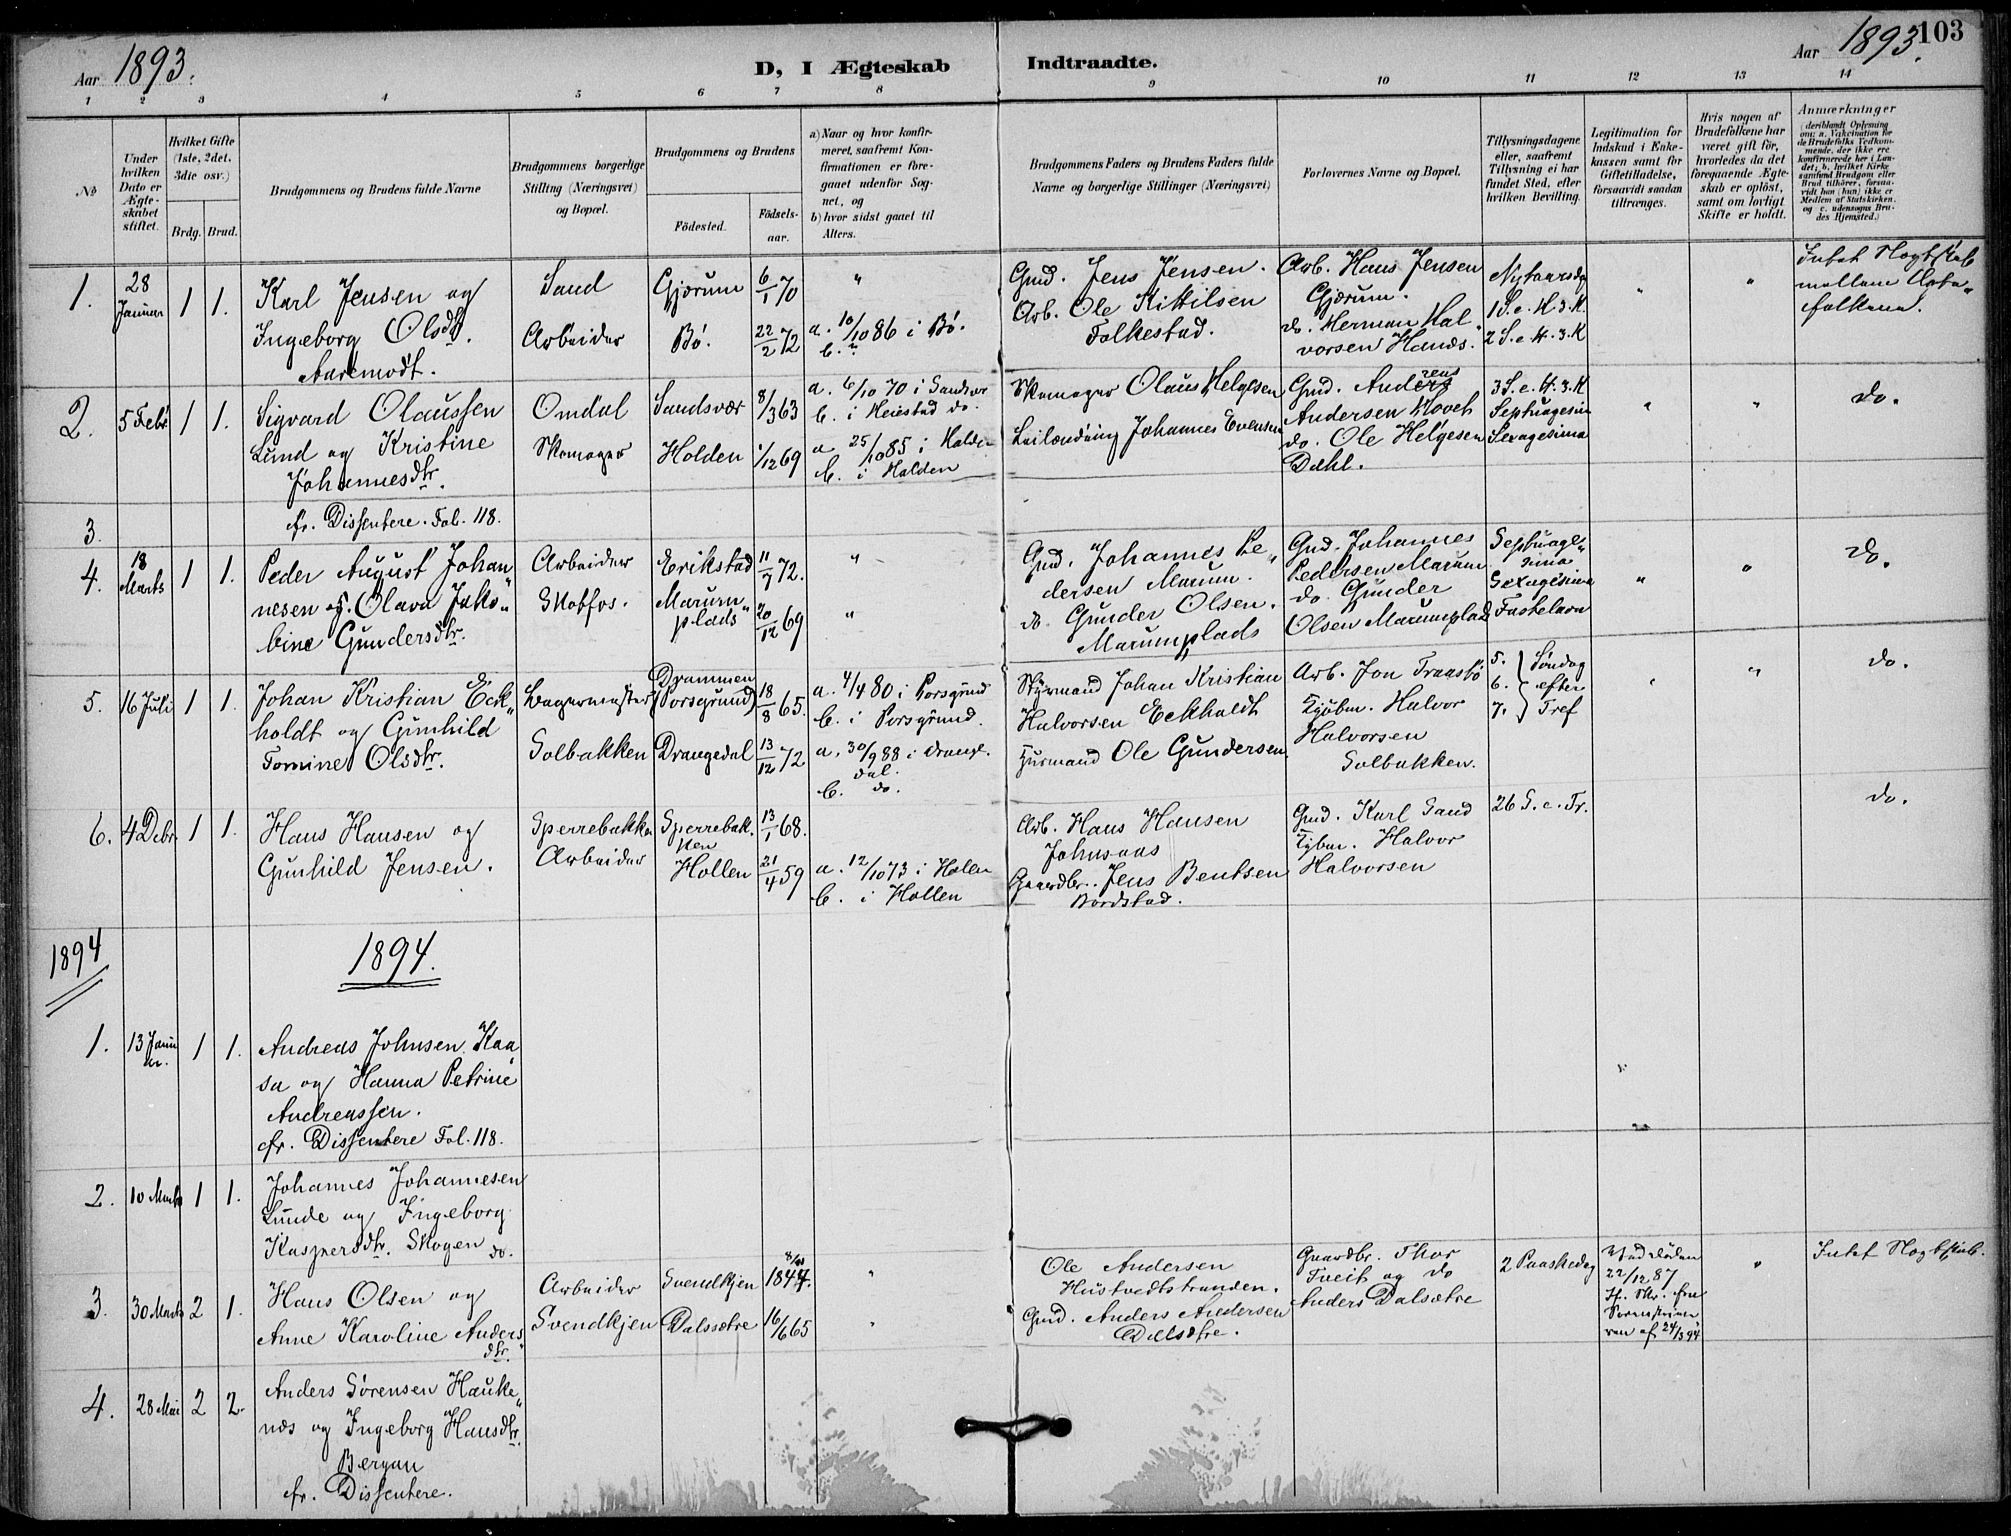 Aar 1893.
D, I Ægteskab Indtraadte.
Aar 1893.
103
1 2 3 4 5 6 7 8 9 10 11 12 13 14
No
Under hvilken Dato er Ægteskabet stiftet.
Hvilket Gifte (1ste, 2det, 3die osv.)
Brdg. Brud.
Brudgommens og Brudens fulde Navne
Brudgommens borgerlige Stilling (Næringsvei) og Bopæl.
Brudgommens og Brudens
Födested.
Födsels-aar.
a) Naar og hvor konfirmeret, saafremt Konfirmationen er foregaaet udenfor Sognet, og
b) hvor sidst gaaet til Alters.
Brudgommens Faders og Brudens Faders fulde Navne og borgerlige Stillinger (Næringsvei)
Forlovernes Navne og Bopæl.
Tillysningsdagene eller, saafremt Tillysning ei har fundet Sted, efter hvilken Bevilling.
Legitimation for Indskud i Enkekassen samt for Giftetilladelse, forsaavidt saadan tiltrænges.
Hvis nogen af Brudefolkene har været gift för, hvorledes da det foregaaende Ægteskab er oplöst, samt om lovligt Skifte er holdt.
Anmærkninger
(deriblandt Oplysning om: a. Vakcination for de Brudefolks Vedkommende, der ikke ere konfirmerede her i Landet; b. hvilket Kirkesamfund Brudgom eller Brud tilhörer, forsaavidt han (hun) ikke er Medlem af Statskirken, og c. udensogns Brudes Hjemsted.)
1. 28 Januar 1 1. Karl Jensen og
Ingeborg Olsdtr.
Aaremodt.
Sand
Arbeider
Gjærum 6/1 70 "
Bö. 22/2 72 a. 10/10 86 i Bö.
b. "
Gmd. Jens Jensen.
Arb. Ole Kittilsen
Folkestad.
Arb. Hans Jensen
Gjærum.
do. Herman Halvorsen Hanæs.
Nytaarsdag
1 S. e. H. 3. K.
2 S. e. H. 3. K
" "
Intet Slægtskab
mellem Ægtefolkene.
2. 5 Febr 1 1. Sigvard Olaussen
Lund og Kristine
Johannesdtr.
Omdal
Skomager
Sandsvær 8/3 63 a. 6/10 70 i Sandsvær
b. i Heistad do.
Holden 1/12 69 a 25/10 85 i Holden
b. i Holden
Skomager Olaus Helgesen
Leilænding Johannes Evensen
Gmd. Anders
Andersen Hovet
do. Ole Helgesen
Dæhl.
3 S. e. H. 3. K
Septuagesima
Sexagesima
" "
do.
3. cfr. Dissentere. Fol. 118.
4. 18 Marts 1 1. Peder August Johannesen og Olava Jakobine Gundersdtr.
Arbeider
Skotfos.
Erikstad 11/7 72. "
Marumplads 20/12 69 "
Gmd. Johannes Pedersen Marum.
do Gunder Olsen.
Marumplads
Gmd. Johannes
Pedersen Marum
do. Gunder
Olsen Marumplads
Septuagesima
Sexagesima
Fastelavn
" "
do.
5. 16 Juli 1 1. Johan Kristian Eckholdt og Gunhild
Tomine Olsdtr.
Lagermester
Solbakken
Drammen
(Porsgrund) 18/8 65. a. 4/4 80 i Porsgrund
b. i Porsgrund.
Drangedal 13/12 72 a. 30/9 88 i Drangedal.
b. do.
Styrmand Johan Kristian
Halvorsen Eckholdt
Ole Gundersen
Arb. Jon Traasbö
Halvor
Halvorsen
Solbakken.
5. 6. 7. } Søndag efter Tref
" "
do.
6. 4 Debr. 1 1. Hans Hansen og
Gunhild Jensen.
Sperrebakken
Arbeider
Sperrebakken 13/1 68.
Hollen 21/4 59 a. 12/10 73 i Holen
b. i Hollen
Arb. Hans Hansen
Johnsaas
Gaardbr. Jens Bentsen
Bordstad.
Gmd. Karl Sand
Halvor
Halvorsen
26 S. e. Tr.
do.
1894 1894.
1. 13 Januar. 1 1. Andreas Johnsen Kaasa og Hanna Petrine
Andreassen.
cfr. Dissentere Fol. 118.
2. 10 Marts 1 1. Johannes Johannesen
Lunde og Ingeborg
Kaspersdtr. Skogen do.
3. 30 Marts 2 1. Hans Olsen og
Anne Karoline Andersdtr.
Arbeider
Svendkjen
Svendkjen 1844. "
Dalssætre 16/6 65 "
Ole Andersen
Hustvedtstranden.
Gmd. Anders Andersen
Dalsætre.
Gaardbr. Thor
Tveit og do
Anders Dalsætre
2 Paaskedag
Ved döden
22/12 87
af 24/3 94
"
Intet Slægtskab.
4. 28 Mai 2 2. Anders Sörensen Haukenæs og Ingeborg Hansdtr.
Bergan
cfr. Dissentere.